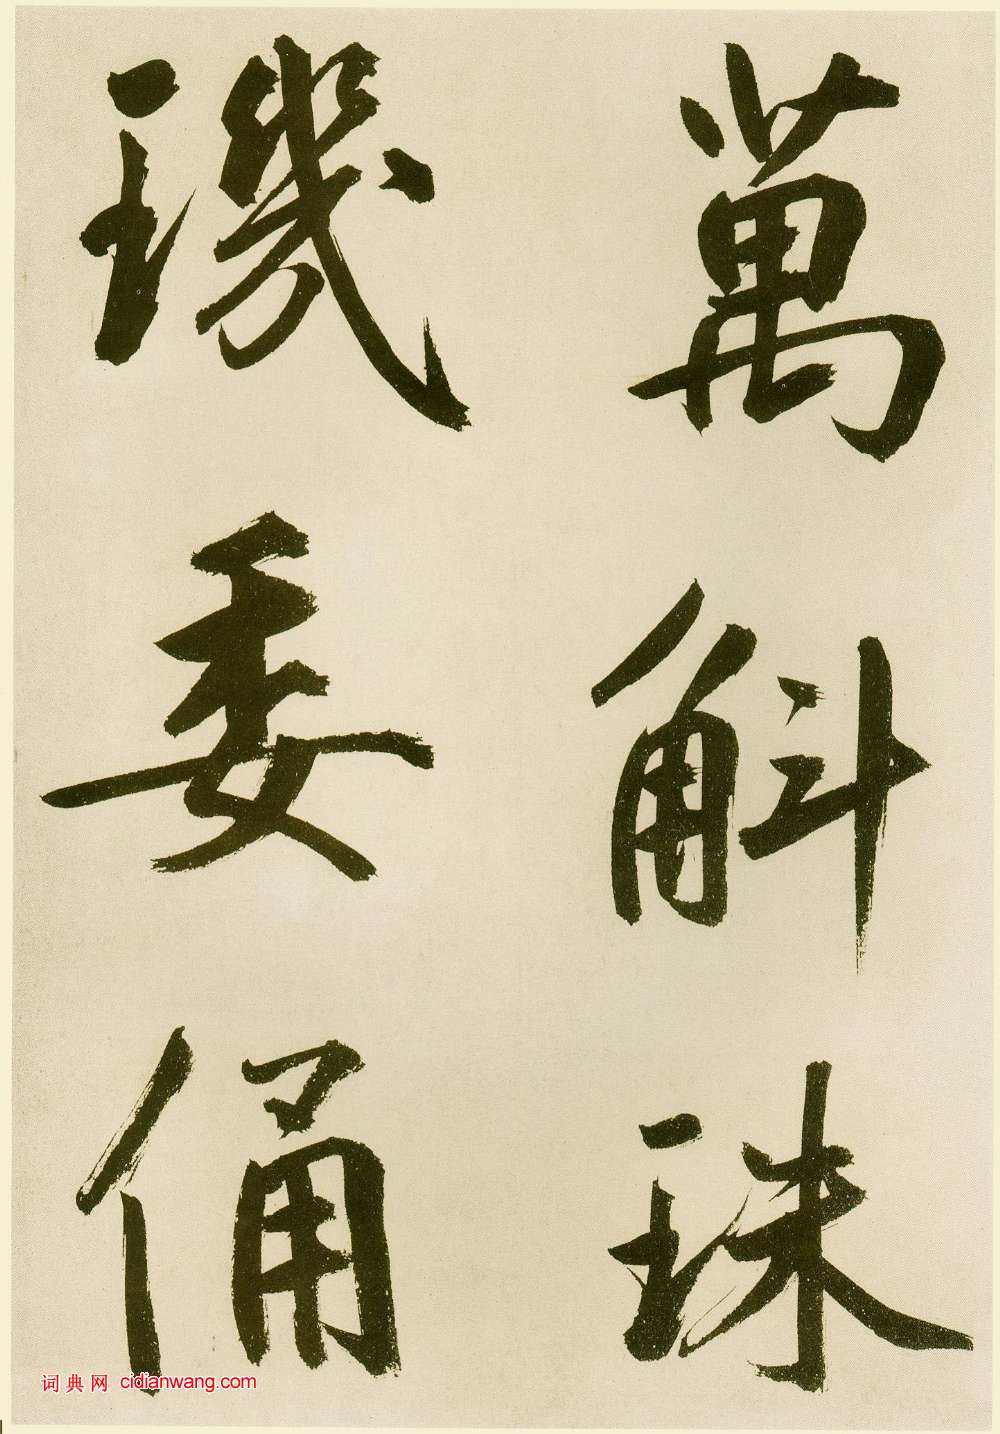 萬斛珠
璣委俑
词典网 cidianwang.com